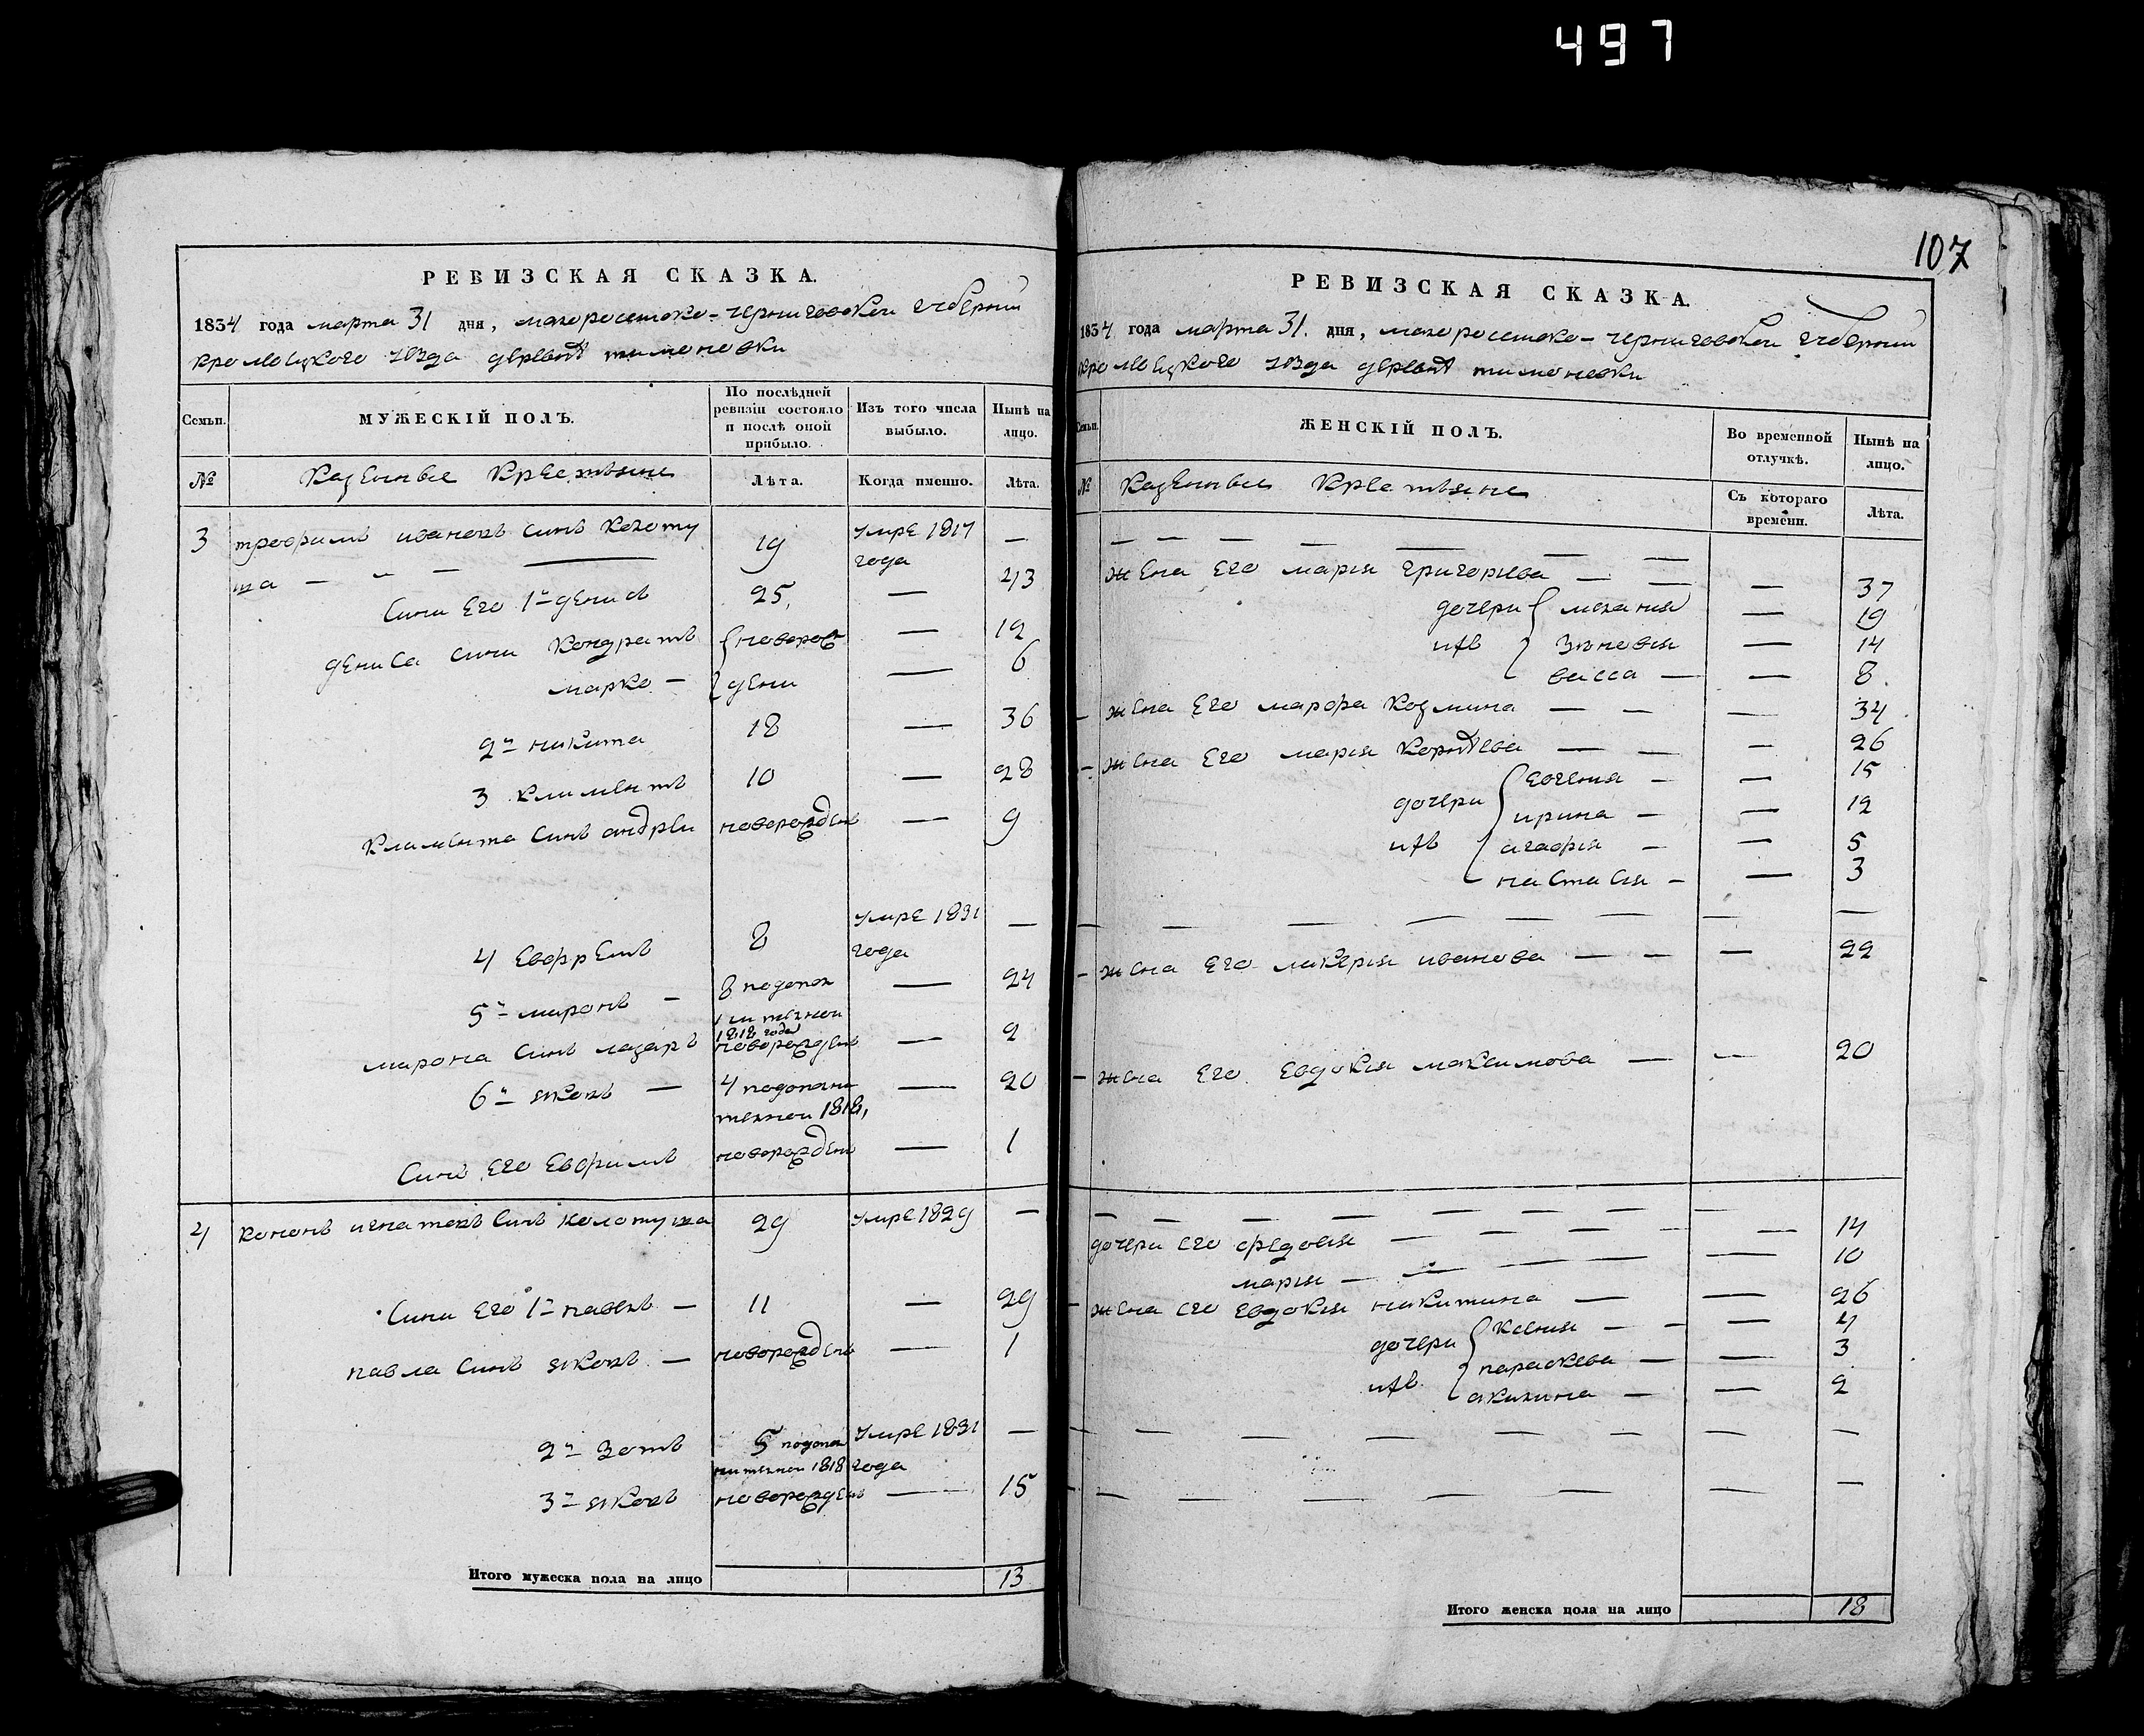 497
107
РЕВИЗСКАЯ СКАЗКА.
1834 года марта 31 дня, малоросийско-черниговской губерний
кролевецкого уезда деревнѣ тимоновки
Семьи.
МУЖЕСКІЙ ПОЛЪ.
По послѣдней ревизіи состояло и послѣ оной прибыло.
Изъ того числа выбыло.
Нынѣ на лицо.
№ Казенные Крестьяне Лѣта. Когда именно. Лѣта.
3 трофимъ ивановъ синъ Колоту 19 умре 1817 —
ша — — — года
Сини Его 1й денисъ 25, — 43
дениса сини Кондратъ новорож — 12
марко — дени — 6
2й никита 18 — 36
3 климентъ 10 — 28
Климента синъ андрей новорожденъ — 9
4 Ефремъ 8 умре 1831 —
года
5й миронъ — 8 подопол — 24
нительной
1818 года
мирона синъ лазаръ новорожденъ — 2
6й яковъ — 4 подополни — 20
тельной 1818,
Синъ Его Ефимъ новорожденъ — 1
4 кононъ игнатовъ Синъ колотуша 29 умре 1829 —
Сини Его 1й павелъ — 11 — 29
павла Синъ яковъ — новорожденъ — 1
2й Зотъ 5 подопол умре 1831 —
нительной 1818 года
3й яковъ новорожденъ — 15
Итого мужеска пола на лицо 13
РЕВИЗСКАЯ СКАЗКА.
1834 года марта 31. дня, малоросийско-черниговской губерний
кролевецкого уезда деревнѣ тимоновки
Семьи.
ЖЕНСКІЙ ПОЛЪ.
Во временной отлучкѣ.
Нынѣ на лицо.
№ Казенные Крестьяне Съ котораго времени. Лѣта.
— — — — — — —
жена Его марія григориева — — — 37
дочери меланія — 19
ихъ Зѣновія — 14
васса — — 8
— жена Его марфа Козмина — — — 34
— жена Его марія Корнѣева — — — 26
дочери евгенія — — 15
ирина — — 12
ихъ агафія — — 5
настасія — — 3
— — — — — — — —
— жена Его лукерія иванова — — — 22
— жена Его Евдокія максимова — — 20
— — — — — — — —
дочери его федосія — — — — 14
марія — — — — — 10
жена его Евдокія никитина — — 26
дочери ксенія — — — 4
параскева — — 3
ихъ акилина — — 2
— — — — — — — —
— — — — — — —
Итого женска пола на лицо 18